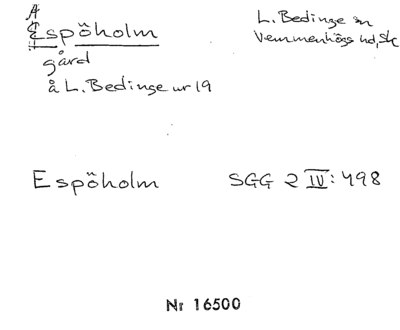 A
Espöholm
gård
å L. Bedinge nr 19
L. Bedinge sn
Vemmenhögs hd, Sk
Espöholm SGG 2 IV: 498
Nr 16500